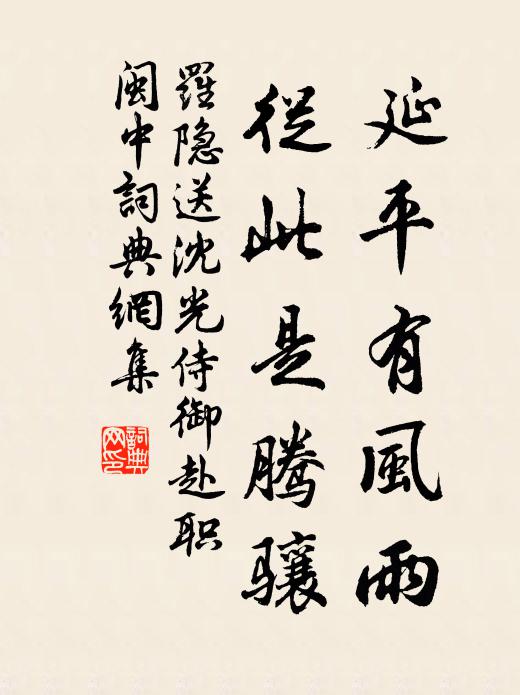 延平有風雨
從此是腾骧
羅隐送沈光侍御赴职
闽中詞典網集
詞典网印